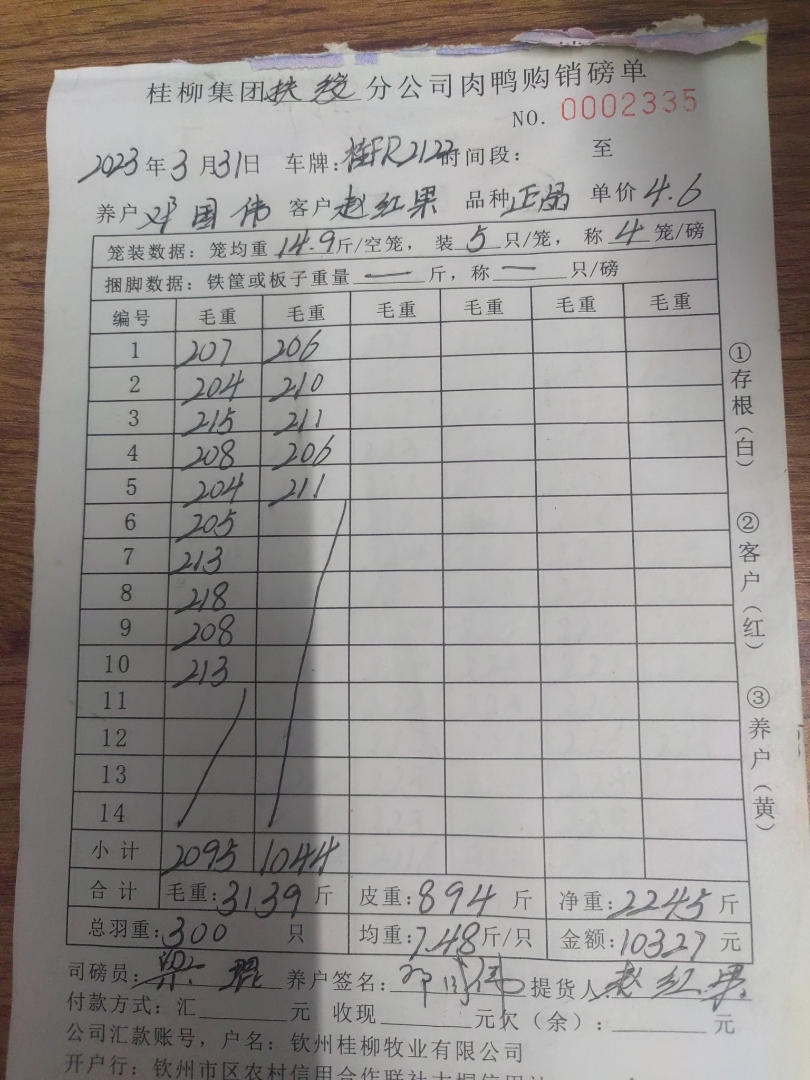 桂柳集团扶绥分公司肉鸭购销磅单
NO. 0002335
2023年3月31日 车牌:桂FR2122时间段: 至
养户邓国伟 客户赵红果 品种正品 单价4.6
笼装数据:笼均重14.9斤/空笼,装5只/笼,称4笼/磅
捆脚数据:铁筐或板子重量—斤,称—只/磅
编号 毛重 毛重 毛重 毛重 毛重 毛重
1 207 206
2 204 210
3 215 211
4 208 206
5 204 211
6 205
7 213
8 218
9 208
10 213
11
12
13
14
小计 2095 1044
合计 毛重:3139斤 皮重:894斤 净重:2245斤
总羽重:300只 均重:7.48斤/只 金额:10327元
司磅员:梁琨 养户签名:邓国伟 提货人:赵红果
付款方式:汇 元 收现 元欠(余): 元
公司汇款账号,户名:钦州桂柳牧业有限公司
开户行:钦州市区农村信用合作联社大垌信用社
①存根(白) ②客户(红) ③养户(黄)